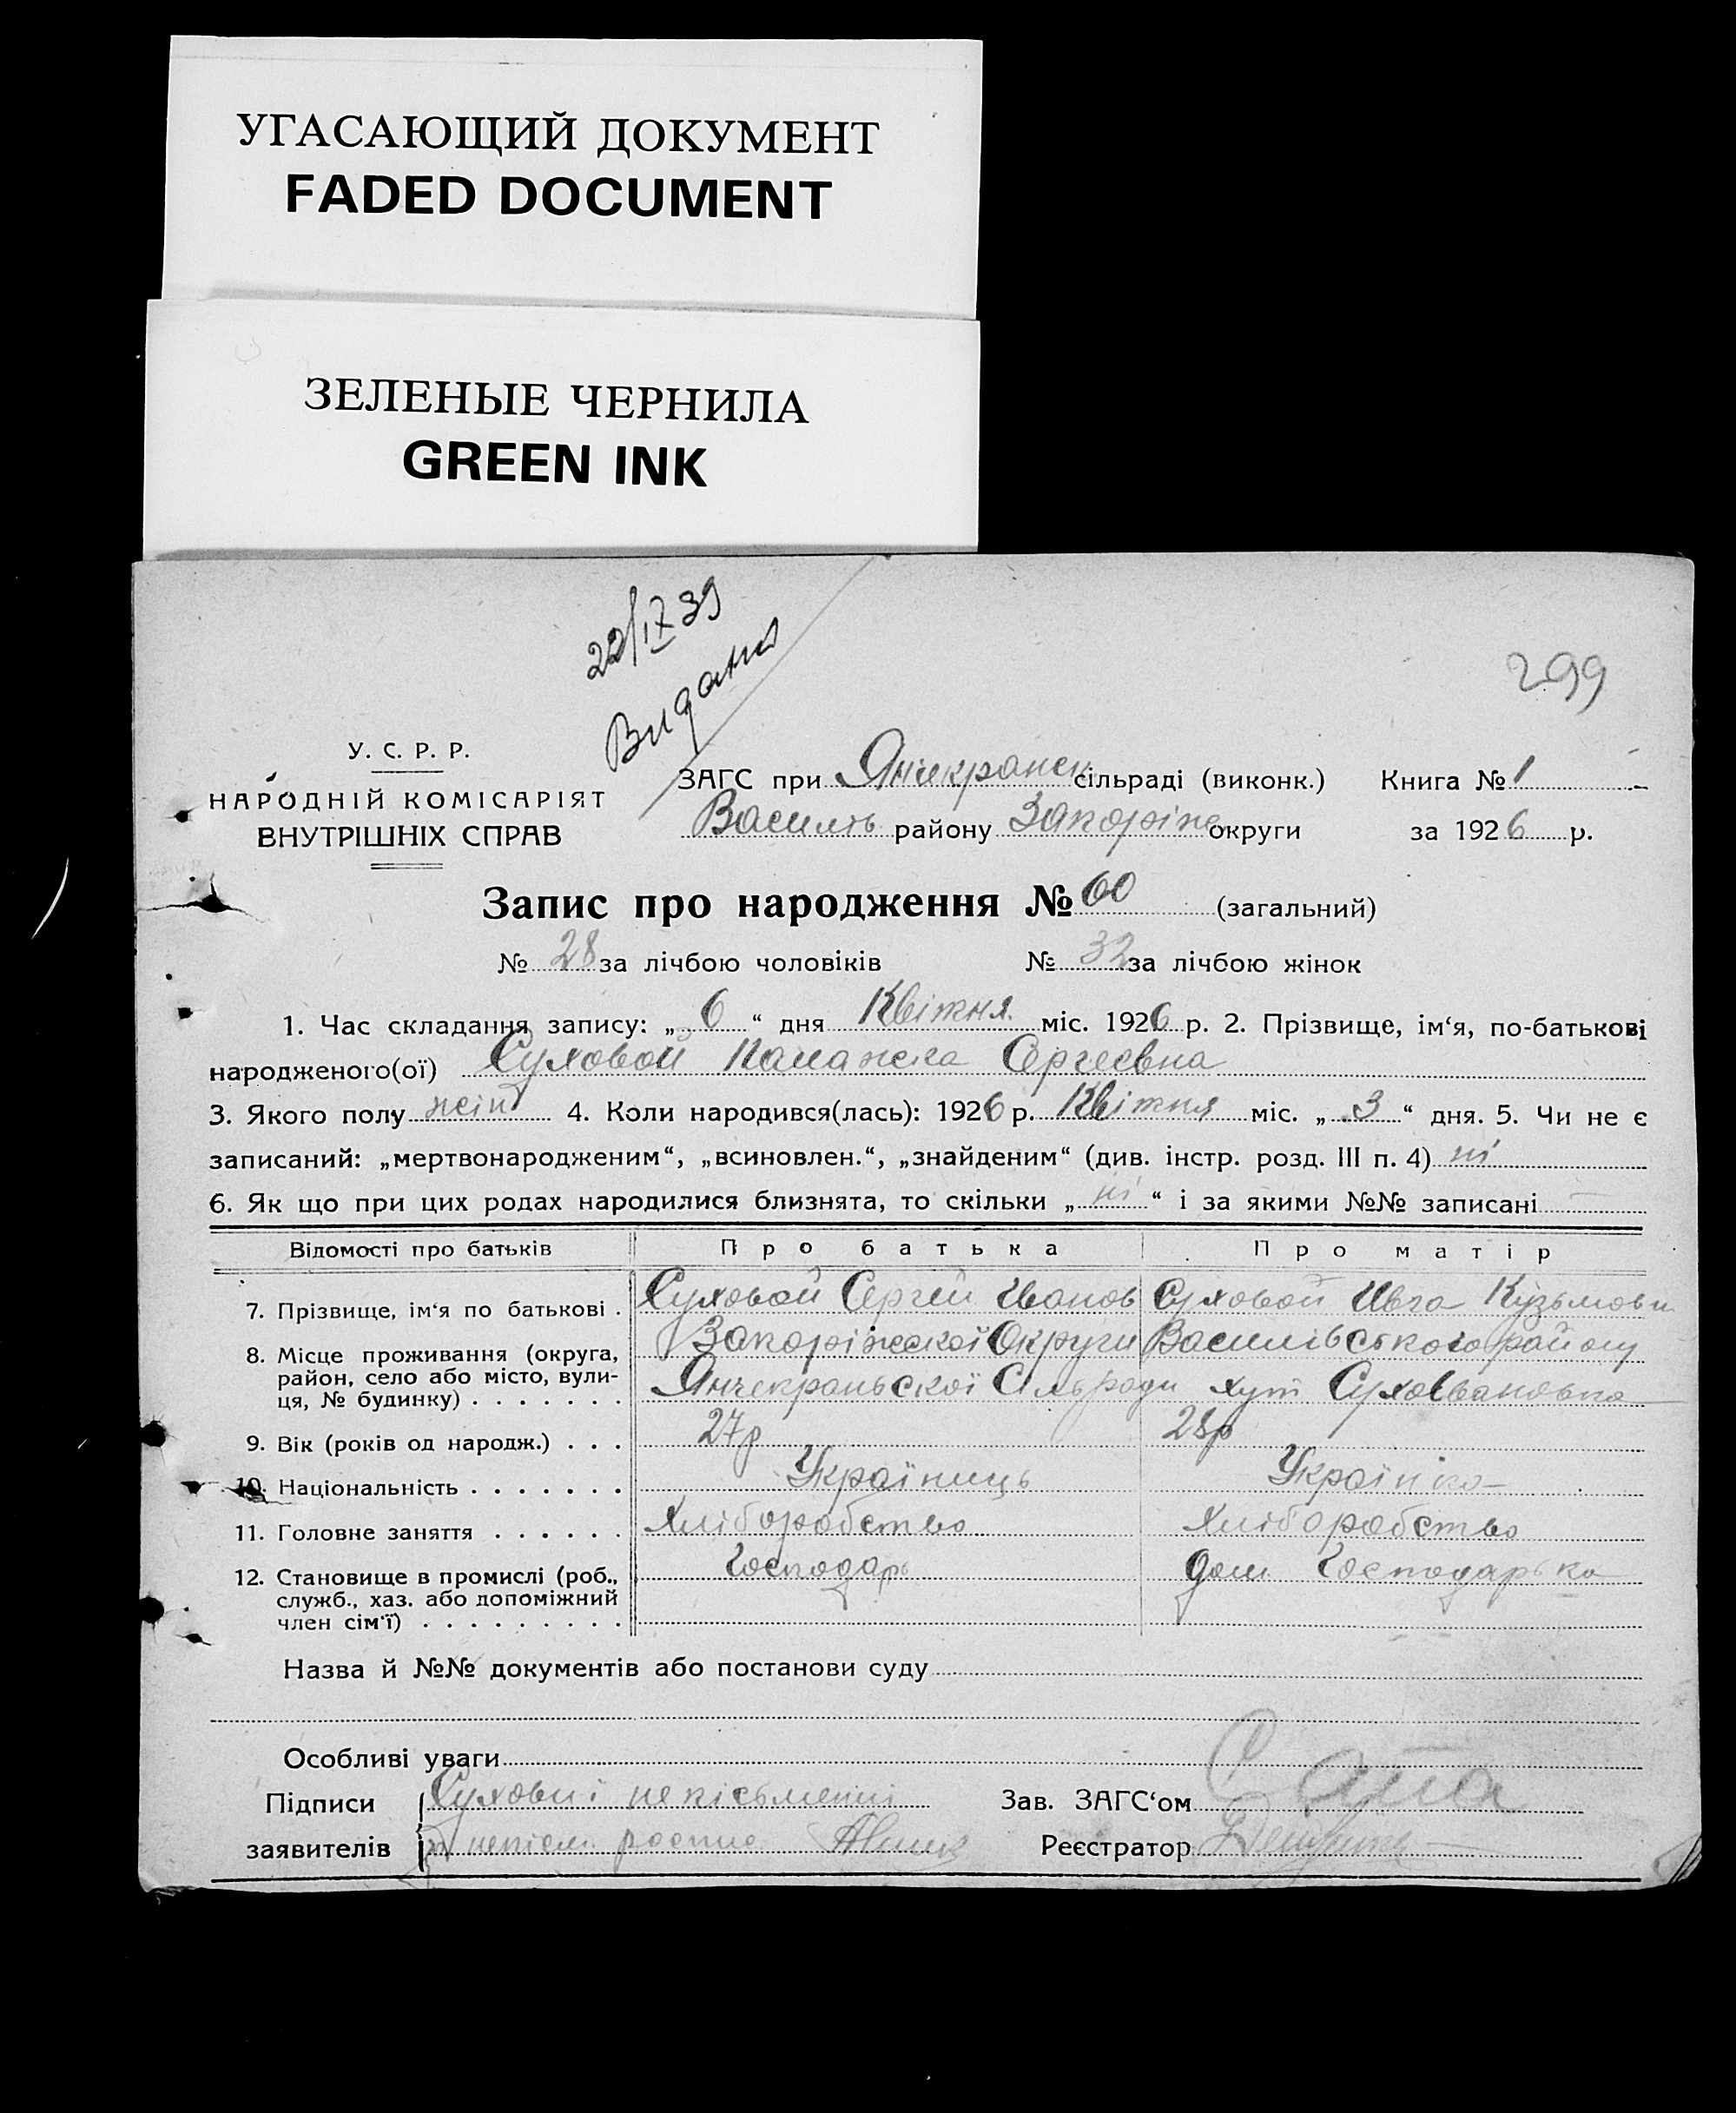 УГАСАЮЩИЙ ДОКУМЕНТ
FADED DOCUMENT
ЗЕЛЕНЫЕ ЧЕРНИЛА
GREEN INK
22/IX 39
Видано
299
У. С. Р. Р.
НАРОДНІЙ КОМІСАРІЯТ
ВНУТРІШНІХ СПРАВ
ЗАГС при Янчекранск сільраді (виконк.) Книга № 1
Василів району Запоріж округи за 1926 р.
Запис про народження № 60 (загальний)
№ 28 за лічбою чоловіків № 32 за лічбою жінок
1. Час складання запису: „ 6 “ дня Квітня міс. 1926 р. 2. Прізвище, ім‘я, по-батькові
народженого(ої) Суховой Сергеевна
3. Якого полу жін 4. Коли народився(лась): 1926 р. Квітня міс. „ 3 “ дня. 5. Чи не є
записаний: „мертвонародженим“, „всиновлен.“, „знайденим“ (див. інстр. розд. III п. 4) ні
6. Як що при цих родах народилися близнята, то скільки „ ні “ і за якими №№ записані —
Відомості про батьків Про батька Про матір
7. Прізвище, ім‘я по батькові . Суховой Сергей Иванов Суховой Ивга Кузьмовн
8. Місце проживання (округа, район, село або місто, вулиця, № будинку) . . . . . . . Запоріжскої Округи Василівського району
Янчекраньскої Сільради хут СухоІвановка
9. Вік (років од народж.) . . . 27р 28р
10. Національність . . . . . . . Українць Українка
11. Головне заняття . . . . . . Хліборобство Хліборобство
12. Становище в промислі (роб., служб., хаз. або допоміжний член сім‘ї) . . . . . . . . . Господарь дом Господарька
Назва й №№ документів або постанови суду
Особливі уваги
Підписи заявителів Сухови і непісьменні
Зав. ЗАГС‘ом Сапа
Реєстратор